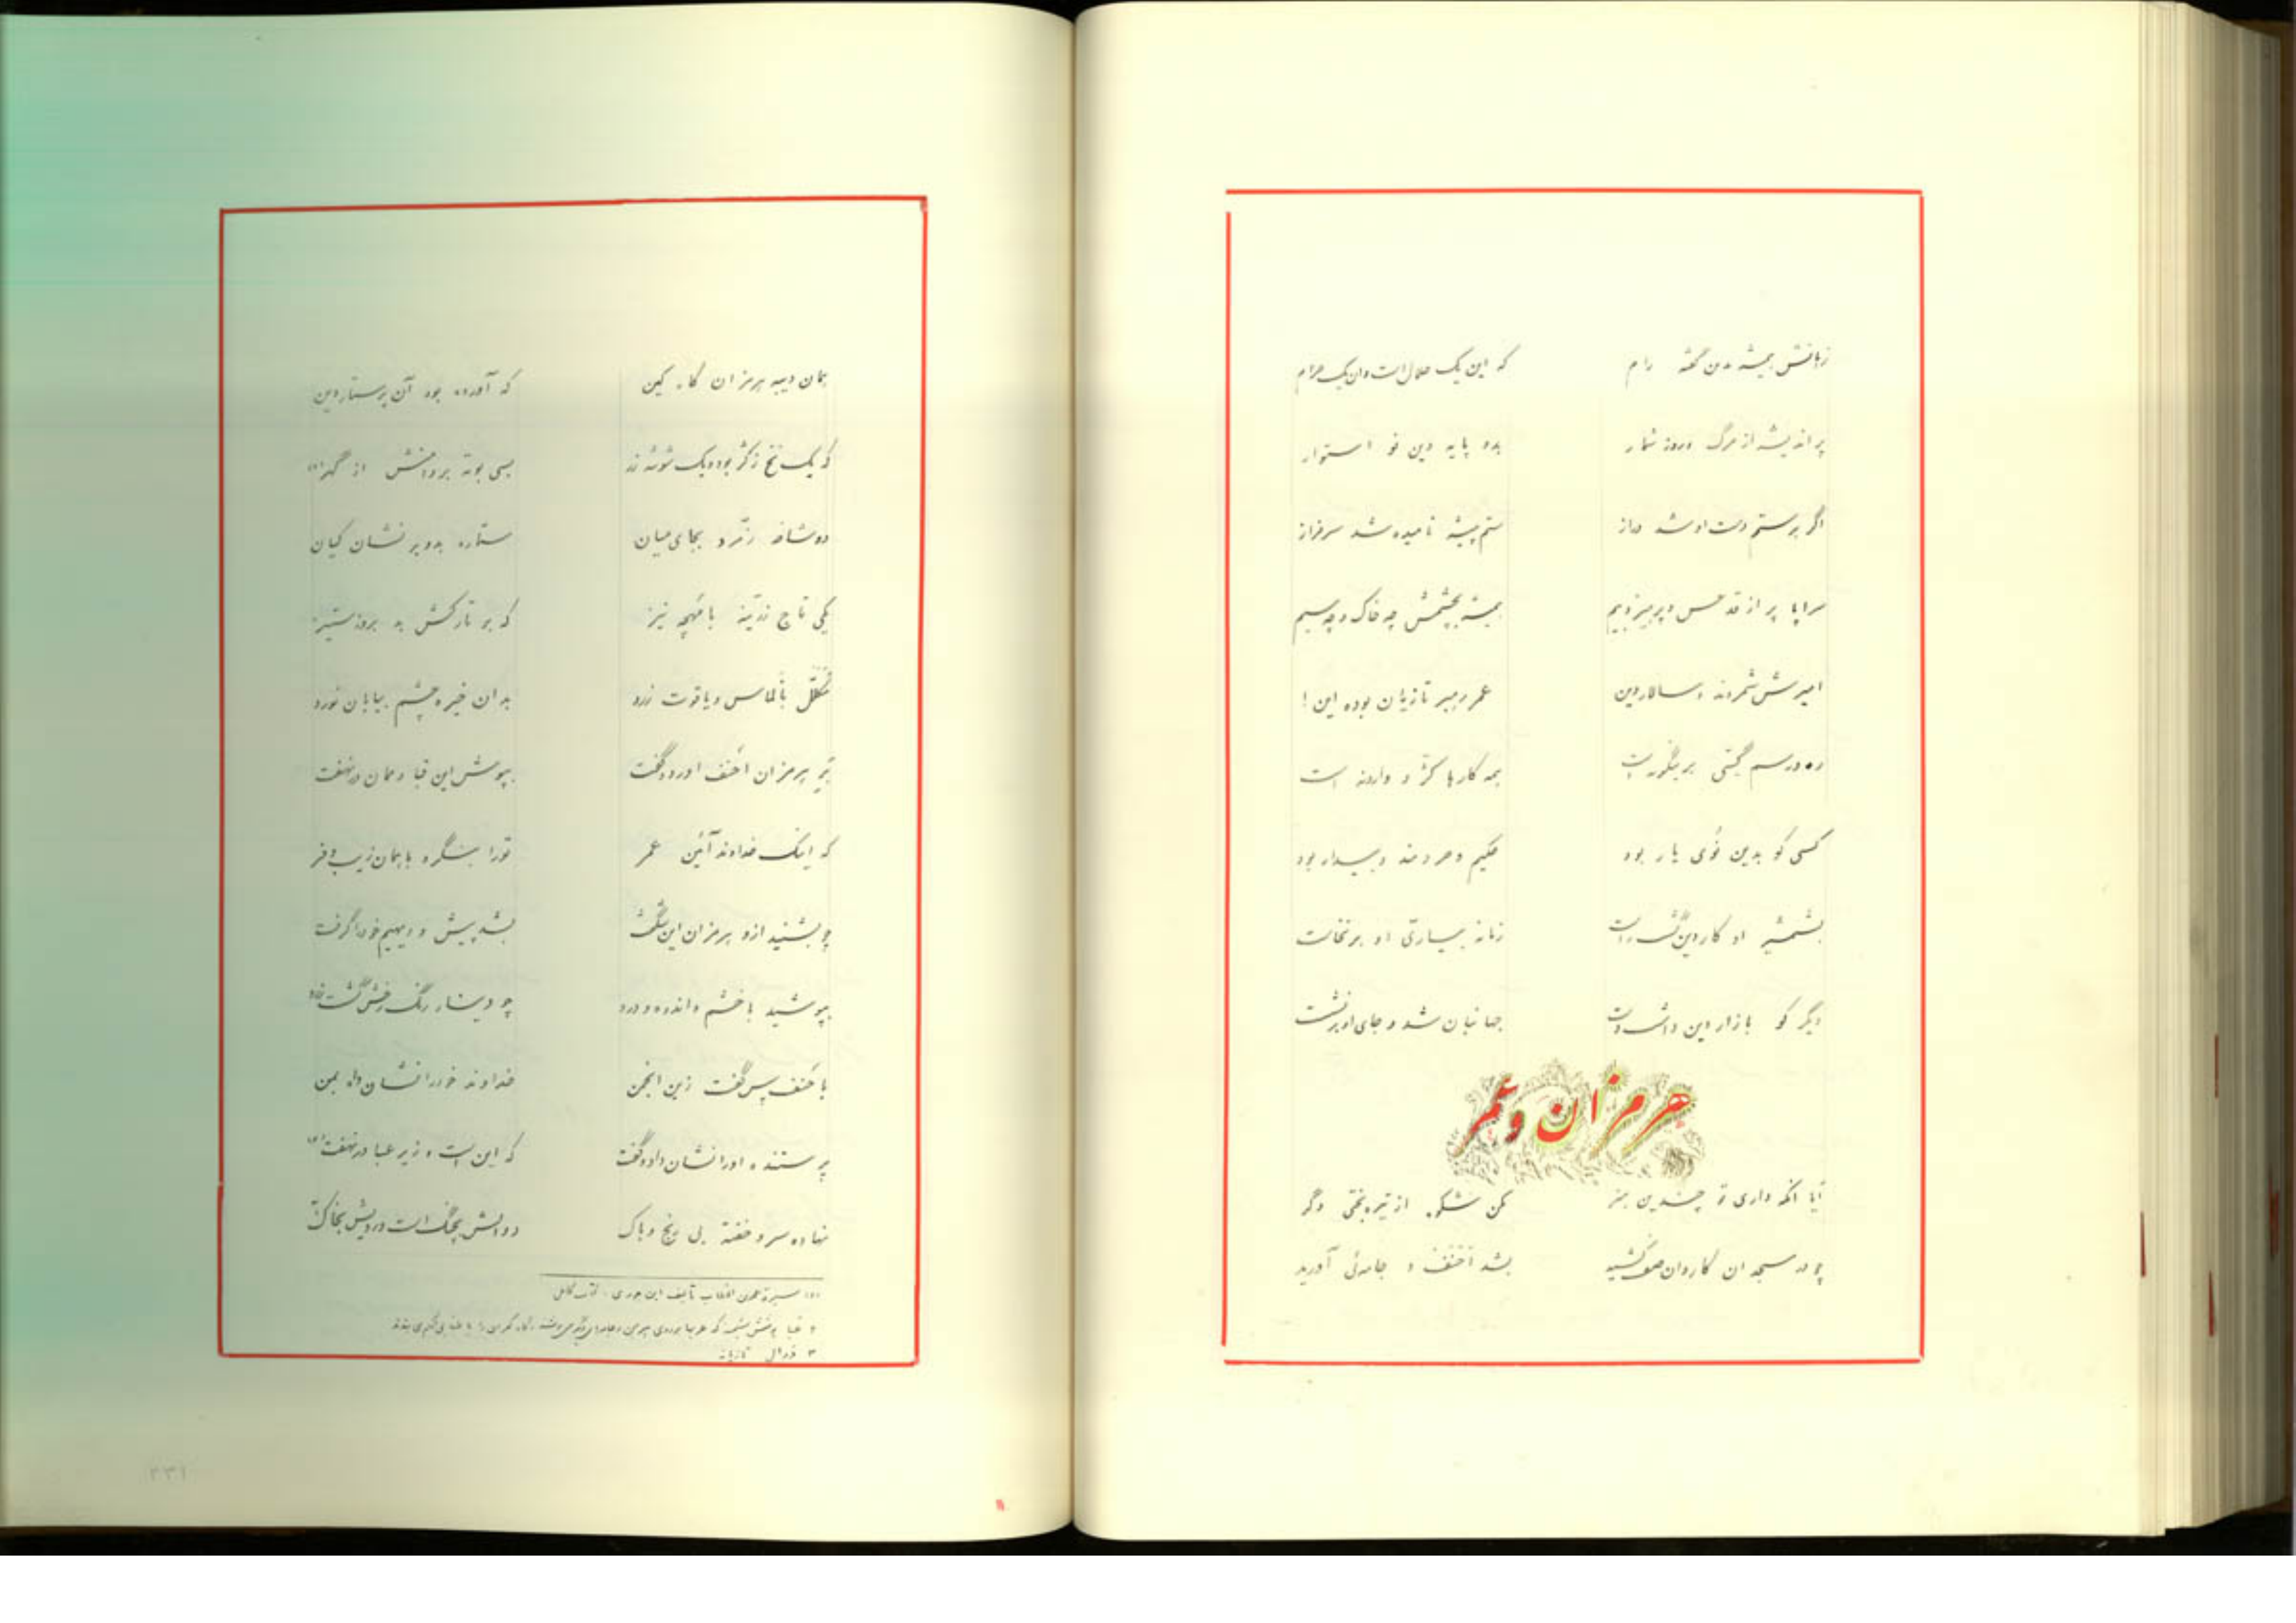 زبانش همیشه بدین گفته رام که این یک حلال است وان یک حرام
پر اندیشه از مرگ وروز شمار بدو پایه دین نو استوار
اگر بر ستم دست او شد دراز ستم پیشه نامیده شد سرفراز
سراپا پر از قدس وپرهیز وبیم همیشه بچشمش چه خاک و چه سیم
امیرش شمردند وسالار دین عمر رهبر تازیان بوده این !
ره ورسم گیتی بر اینگونه است همه کارها کژ و وارونه است
کسی کو بدین نوی یار بود حکیم وخردمند وبیدار بود
بشمشیر او کار دین گشت راست زمانه بیاری او برنخاست
دیگر کو بازار این داشت دست جهانبان شد و جای او برنشست
هرمزان و عمر
آیا آنکه داری تو چندین هنر مکن شکوه از تیره بختی دگر
چو در مسجد آن کاروان صف کشید بشد احنف و جامه‌ئی آورید
همان دیبه هرمزان گاه کین که آورده بود آن پرستار دین
که یک نخ زکژ بود ویک شوشه زر بسی بوته بر دامنش از گهر (۱)
دوشاخه زمرد بجای میان ستاره بدو بر نشان کیان
یکی تاج زرینه با مهچه نیز که بر تارکش بد بروز ستیز
مکلل بالماس ویاقوت زرد بدان خیره چشم بیابان نورد
بر هرمزان احنف آورد وگفت بپوش این قبا ومان در نهفت
که اینک خداوند آئین عمر تورا بنگرد با همان زیب وفر
چو بشنید ازو هرمزان این شگفت بشد پیش و دیهیم خود را گرفت
بپوشید با خشم واندوه ودرد چو دینار رنگ رخش گشت زرد
باحنف پس گفت زین انجمن خداوند خود را نشان ده بمن
پرستنده اورا نشان داد وگفت که این است و زیر عبا در نهفت (۲)
نهاده سر و خفته بی رنج وباک دوالش بچنگ است ورویش بخاک (۳)
(۱) سیرة عمربن الخطاب تألیف ابن جوزی ، کتاب کامل
۲ عبا پوشش پشمینه که عربها بر روی پیرهن
۳ دوال تازیانه
۳۳۱